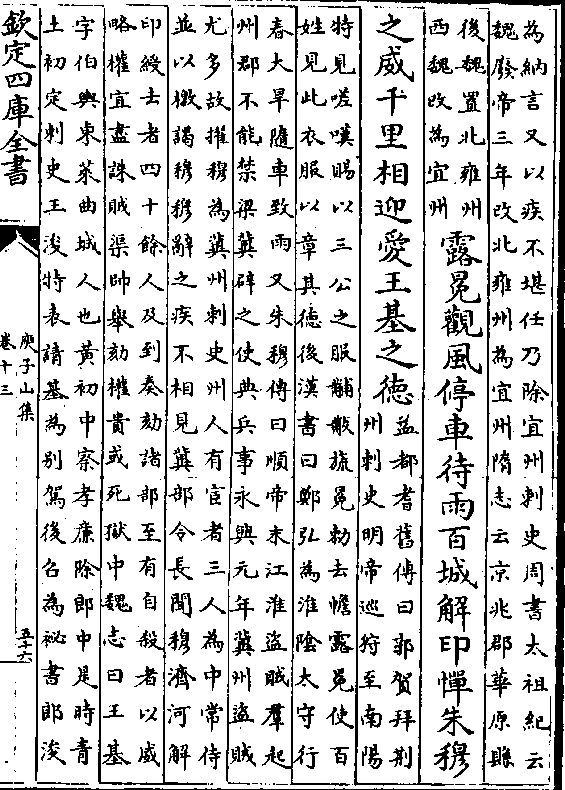 為納言又以疾不堪任乃除宜州刺史周書太祖紀云
魏廢帝三年改北雍州為宜州隋志云京兆郡華原縣
後魏置北雍州
西魏改為宜州
露冕觀風停車待雨百城解印憚朱穆
之威千里相迎愛王基之德
益都耆舊傳曰郭賀拜荆
州刺史明帝巡狩至南陽
特見嗟嘆賜以三公之服黼黻旒冕勅去幨露冕使百
姓見此衣服以章其德後漢書曰鄭弘為淮陰太守行
春大旱隨車致雨又朱穆傳曰順帝末江淮盜賊羣起
州郡不能禁梁冀辟之使典兵事永興元年冀州盜賊
尤多故擢穆為冀州刺史州人有宦者三人為中常侍
並以檄謁穆穆辭之疾不相見冀部令長聞穆濟河解
印綬去者四十餘人及到奏劾諸部至有自殺者以威
略權宜盡誅賊渠帥舉劾權貴或死獄中魏志曰王基
字伯輿東萊曲城人也黃初中察孝廉除郎中是時青
土初定刺史王浚特表請基為別駕後召為祕書郎浚
欽定四庫全書
庾子山集
卷十三
五十六